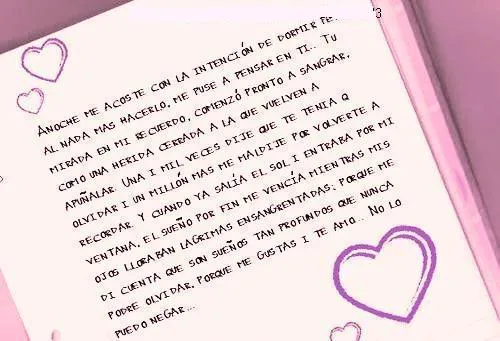 '3
Anoche me acoste con la intención de dormir
al nada mas hacerlo, me puse a pensar en ti.. Tu
mirada en mi recuerdo, comenzó pronto a sangrar,
como una herida cerrada a la que vuelven a
apuñalar. Una i mil veces dije que te tenia q
olvidar i un millón mas me maldije por volverte a
recordar. Y cuando ya salía el sol i entraba por mi
ventana, el sueño por fin me vencía mientras mis
ojos lloraban lágrimas ensangrentadas; porque me
di cuenta que son sueños tan profundos que nunca
podre olvidar, porque me gustas i te amo.. No lo
puedo negar...